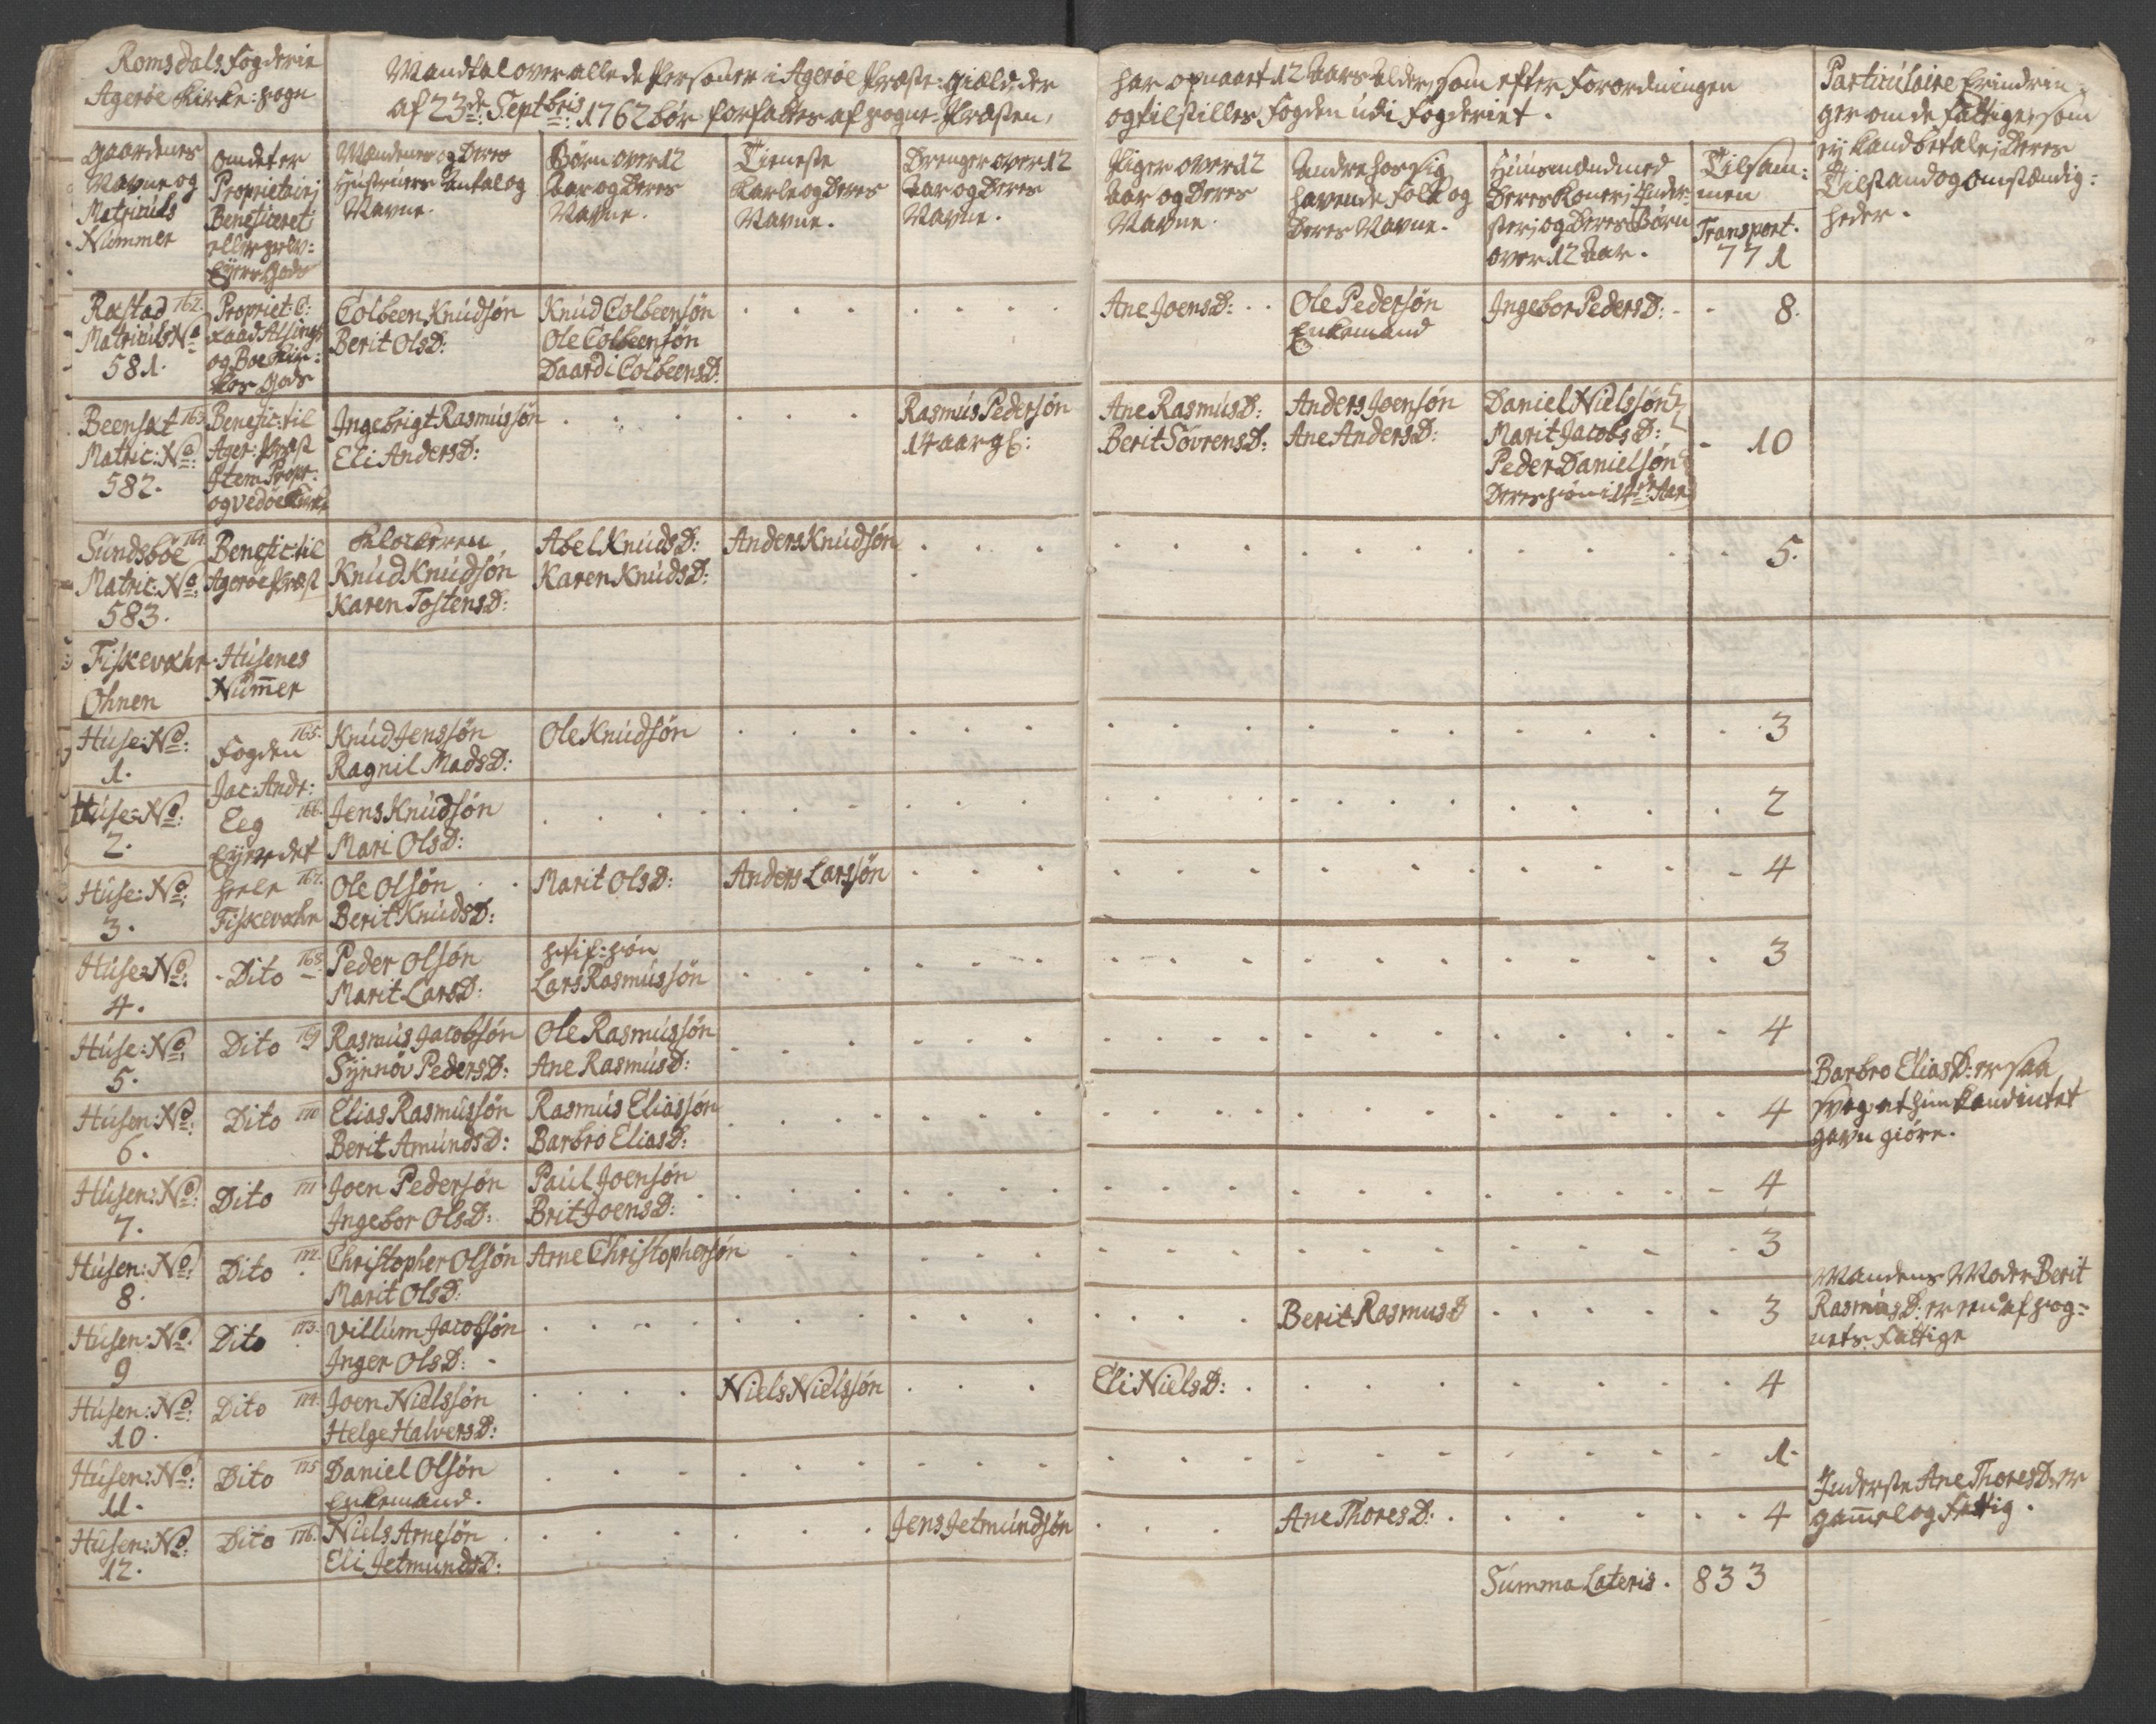 Romsdals Fogderie
Agerøe Kirke-Sogn
Mandtal over alle de Personer i Agerøe Præste-Gield, der
af 23de Septbris 1762 bør forfattes af Sogne-Præsten,
har opnaaet 12 Aars Alder, som efter Forordningen
og tilstilles Fogden udi Fogderiet.
Particulaire Erindrin-
ger om de Fattige, som
ej kand betale, Deres
Tilstand og Omstændig-
heder.
Gaardenes
Navne og
Matriculs
Nummer
Om det er
Proprietairj
Beneficeret
eller Selv-
Eyer Gods
Mændenes og Deres
Hustruers Antal og
Navne.
Børn over 12
Aar og Deres
Navne.
Tieneste
Karle og Deres
Navne.
Drenger over 12
Aar og Deres
Navne.
Piger over 12
Aar og Deres
Navne.
Andre for sig
havende Folk og
Deres Navne.
Huusmænd med
Deres Koner, Inder-
ster, og Deres Børn
over 12 Aar.
Tilsam-
men
Transport.
771
Røstad 162.
Matriculs No
581.
Propriet: C:
Raad
og Boe Kir-
kes Gods
Colbeen Knudsøn
Berit OlsD:
Knud Colbeensøn
Ole Colbeensøn
Daardi ColbeensD:
Ane JoensD:
Ole Pedersøn
Enkemand
Ingebor PedersD:
8.
Beensæt 163.
Matric: No:
582.
Benefic: til
Ager: Præst
Item Propr:
og Vedøe Kirke
Ingebrigt Rasmusøn
Eli AndersD:
Rasmus Pedersøn
14 aar gl:
Ane RasmusD:
Berit SøvrensD:
Anders Joensøn
Ane AndersD:
Daniel Nielssøn
Marit JacobsD:
Peder Danielsøn
Deres Søn i 14de Aar
10
Sundsbøe 164.
Matric: No:
583.
Benefic: til
Agerøe Præst
Klockeren
Knud Knudsøn
Karen TostensD:
Abel KnudsD:
Karen KnudsD:
Anders Knudsøn
5.
Fiskevæhr
Ohnen
Husenes
Nummer
Huse: No:
1.
165.
Fogden
Jac: Andr:
Eeg
Eyer det
heele
Fiskevæhr
Knud Jenssøn
Ragnil MadsD:
Ole Knudsøn
3
Huse: No:
2.
166.
Jens Knudsøn
Mari OlsD:
2
Huse: No:
3.
167.
Ole Olsøn
Berit KnudsD:
Marit OlsD:
Anders Larssøn
4
Huse: No:
4.
Dito 168.
Peder Olsøn
Marit LarsD:
Stif-Søn
Lars Rasmussøn
3
Huse: No:
5.
Dito 169
Rasmus Jacobsøn
Synnøv PedersD:
Ole Rasmussøn
Ane RasmusD:
4
Husen: No:
6.
Dito 170
Elias Rasmussøn
Berit AmundsD:
Rasmus Eliassøn
Barbro EliasD:
4
Barbro EliasD: er saa
svag at hun kand intet
gavn giøre.
Husen: No:
7.
Dito 171
Joen Pedersøn
Ingebor OlsD:
Paul Joensøn
Brit JoensD:
4
Husen: No:
8.
Dito 172.
Christopher Olsøn
Marit OlsD:
Arne Christophersøn
3
Husen: No:
9
Dito 173.
Villum Jacobsøn
Inger OlsD:
Berit RasmusD
3
Mandens Moder Berit
RasmusD: er een af Sog-
nets Fattige
Husen: No:
10.
Dito 174.
Joen Nielssøn
Helge HalversD:
Niels Nielssøn
Eli NielsD:
4
Husen: No:
11.
Dito 175
Daniel Olsøn
Enkemand.
1.
Husen: No:
12.
Dito 176.
Niels Arnesøn
Eli JetmundsD:
Jens Jetmundsøn
Ane ThoresD:
4
Inderste Ane ThoresD: er
gammel og Fattig.
Summa Lateris. 833